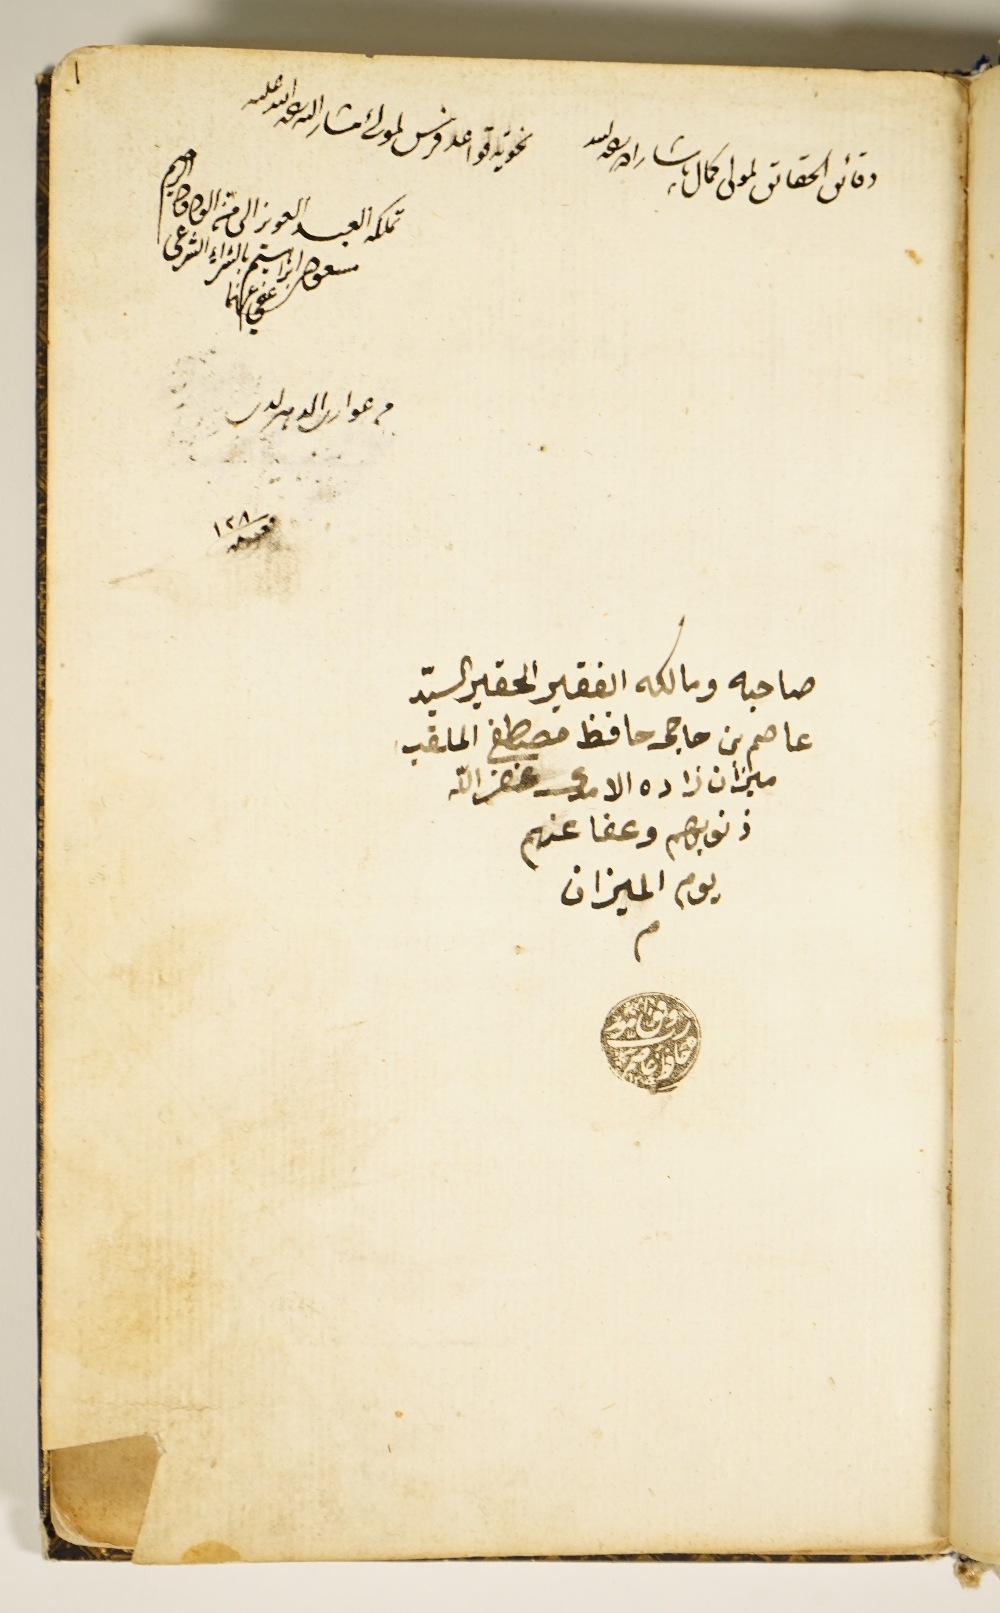 ١
دقائق الحقائق لمولى كمال پاشا زاده رحمه الله
نحويه قواعد فرس لمولى مشار اليه رحمة الله عليه
تملكه العبد العويز الى منه
مسعود بن ابراهيم بالشراء الشرعي
عفي عنهما
من عواري الدهر لدى
١٢٨
صاحبه ومالكه الفقير الحقير السيّد
عاصم بن حاجى حافظ مصطفى الملقب
ميزان زاده الامدى غفر الله
ذنوبهم وعفا عنهم
يوم الميزان
م